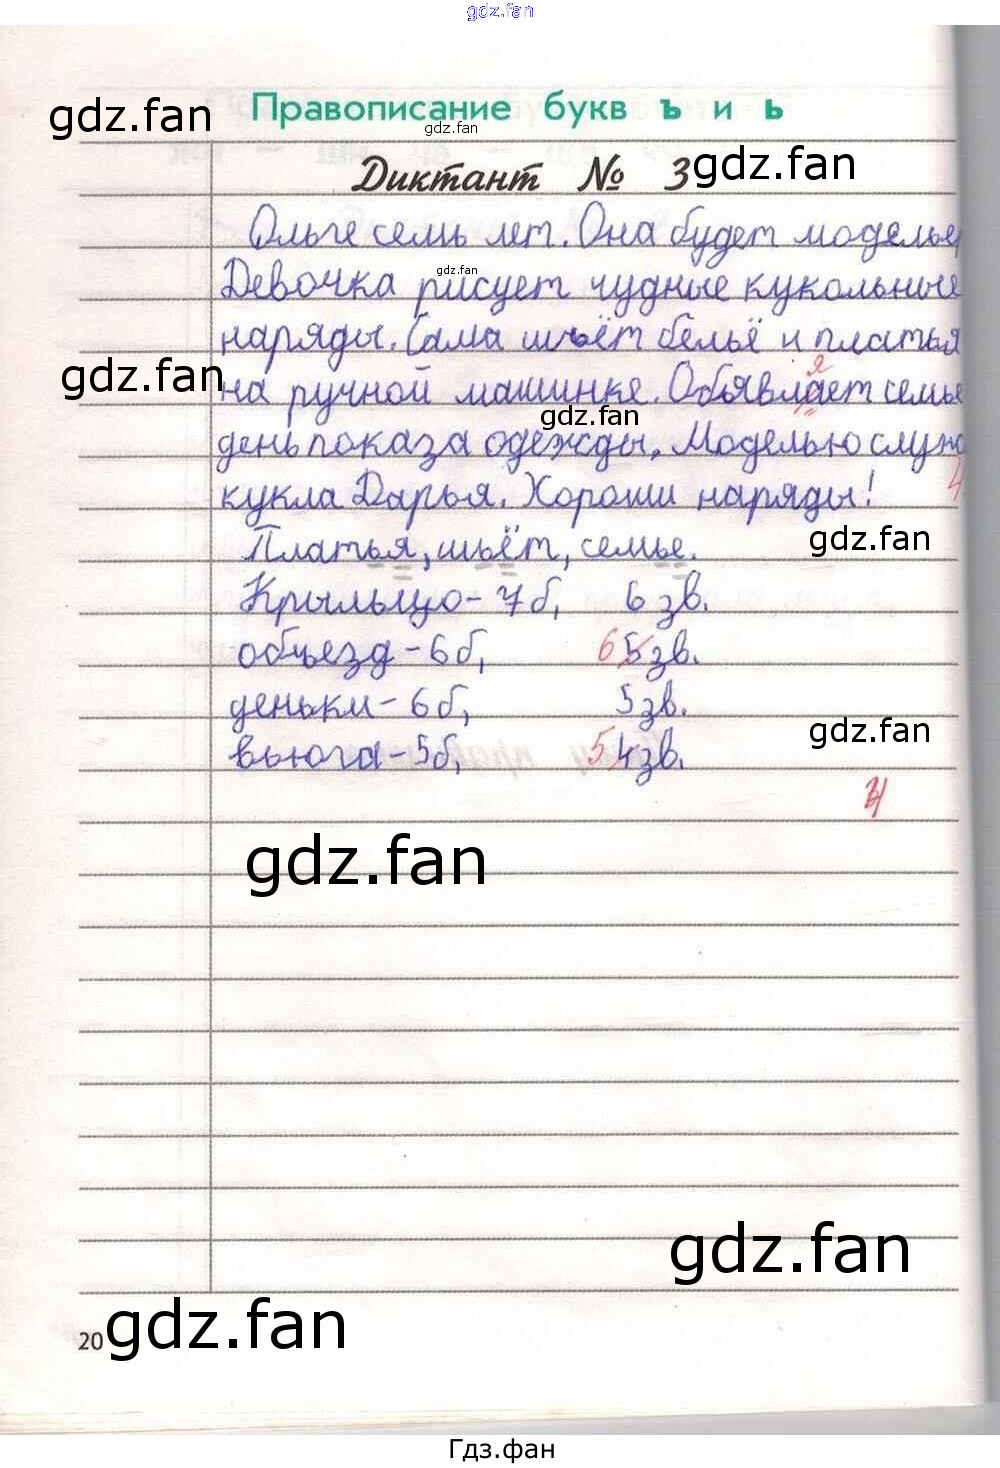 gdz.fan
gdz.fan
Правописание букв ъ и ь
gdz.fan
Диктант № 3
gdz.fan
Ольге семь лет. Она будет моделье
gdz.fan
Девочка рисует чудные кукольные
наряды. Сама шьёт бельё и платья
gdz.fan
я
на ручной машинке. Объявлает семье
gdz.fan
день показа одежды. Моделью служ
кукла Дарья. Хороши наряды!
4
gdz.fan
Платья, шьёт, семье.
Крыльцо - 7 б, 6 зв.
объезд - 6 б, 6 5 зв.
деньки - 6 б, 5 зв.
gdz.fan
вьюга - 5 б, 5 4 зв.
gdz.fan
gdz.fan
20
gdz.fan
Гдз.фан